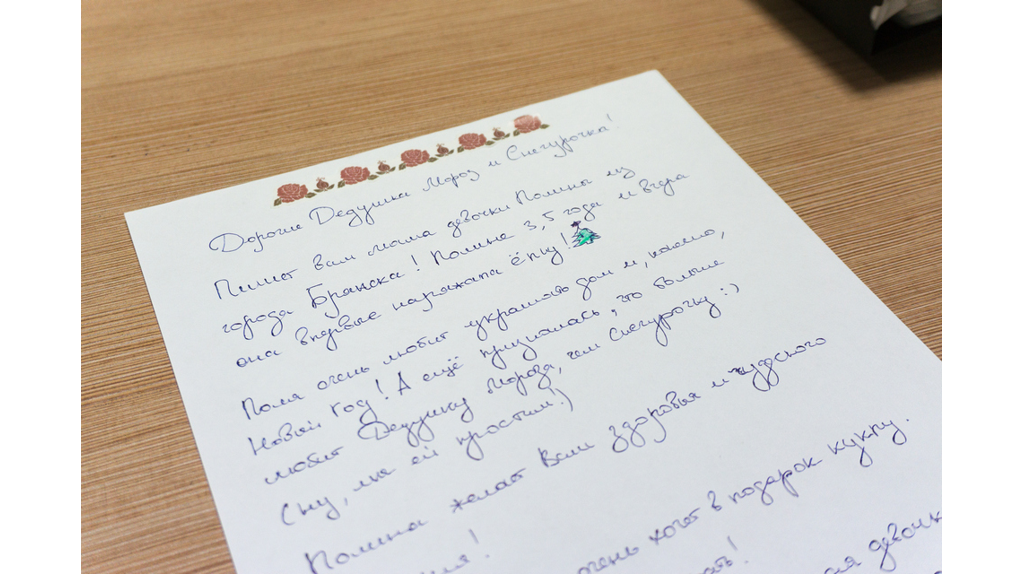 Дорогие Дедушка Мороз и Снегурочка!
Пишет вам мама девочки Полины из
города Брянска! Полине 3,5 года и вчера
она впервые наряжала ёлку!
Поля очень любит украшать дом и, конечно,
Новый год! А ещё призналась, что больше
любит Дедушку Мороза, чем Снегурочку :)
(ну, мы ей простим!)
Полина желает Вам здоровья и чудного
очень хочет в подарок куклу.
девочк